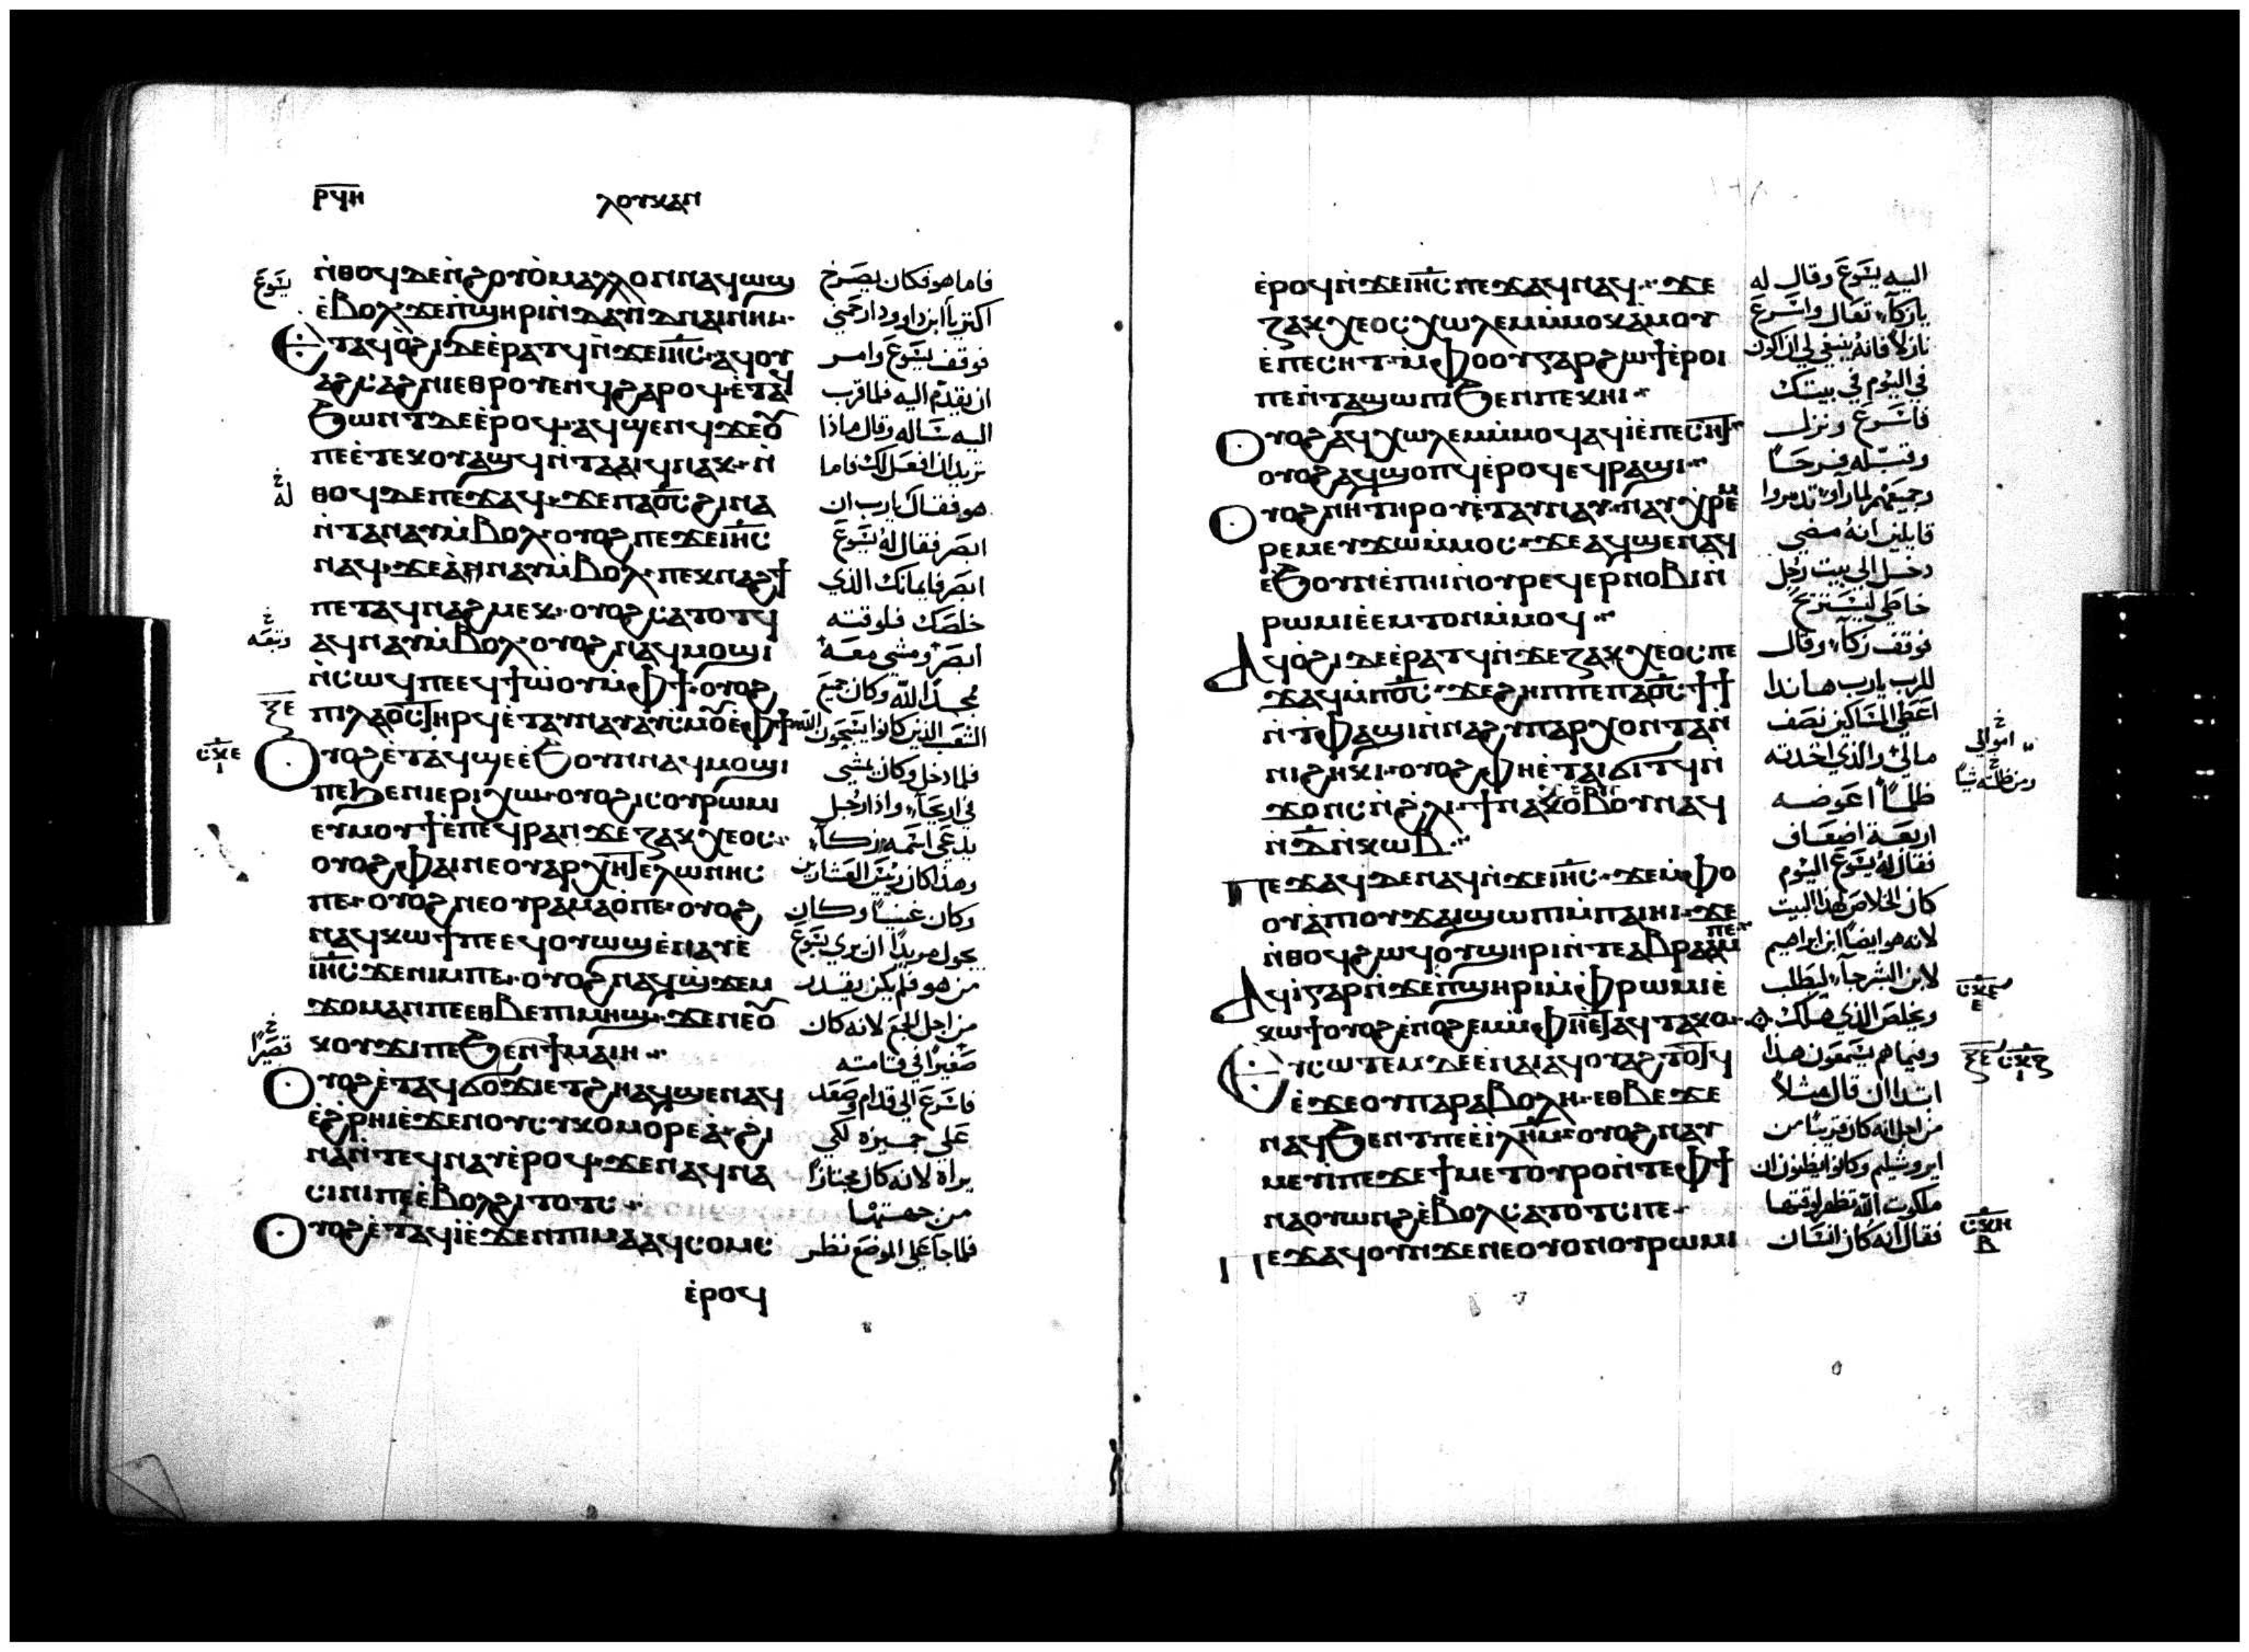 ⲣϥⲏ ⲗⲟⲩⲕⲁⲛ
ⲛ̀ⲑⲟϥ ⲇⲉ ⲛ̀ϩⲟⲩⲟ̀ ⲙⲁⲗⲗⲟⲛ ⲛⲁϥⲱϣ
ⲉ̀ⲃⲟⲗ ϫⲉ ⲡ̀ϣⲏⲣⲓ ⲛ̀ⲇⲁⲇ ⲛⲁⲓ ⲛⲏⲓ
ⲉⲧⲁϥⲟ̀ϩⲓ ⲇⲉ ⲉ̀ⲣⲁⲧϥ ⲛ̀ϫⲉ ⲓⲏ̅ⲥ̅ ⲁϥⲟⲩ
ⲁϩⲥⲁϩⲛⲓ ⲉⲑⲣⲟⲩⲉⲛϥ ϩⲁⲣⲟϥ ⲉ̀ⲧⲁϥ
ϧⲱⲛⲧ ⲇⲉ ⲉ̀ⲣⲟϥ ⲁϥϣⲉⲛϥ ϫⲉ ⲟⲩ
ⲡⲉ ⲉ̀ⲧⲉⲕⲟⲩⲁϣϥ ⲛ̀ⲧⲁⲁⲓϥ ⲛⲁⲕ ⲛ̀
ⲑⲟϥ ⲇⲉ ⲡⲉϫⲁϥ ϫⲉ ⲡⲁⲟ̅ⲥ̅ ϩⲓⲛⲁ
ⲛ̀ⲧⲁⲛⲁⲩ ⲙ̀ⲃⲟⲗ ⲟⲩⲟϩ ⲡⲉϫⲉ ⲓⲏ̅ⲥ̅
ⲛⲁϥ ϫⲉ ⲁ̀ⲛⲁⲩ ⲙ̀ⲃⲟⲗ ⲡⲉⲕⲛⲁϩϯ
ⲡⲉⲧⲁϥⲛⲁϩⲙⲉⲕ ⲟⲩⲟϩ ⲥⲁⲧⲟⲧϥ
ⲁϥⲛⲁⲩ ⲙ̀ⲃⲟⲗ ⲟⲩⲟϩ ⲛⲁϥⲙⲟϣⲓ
ⲛ̀ⲥⲱϥ ⲡⲉ ⲉϥϯⲱ̀ⲟⲩ ⲙ̀ⲫϯ ⲟⲩⲟϩ
ⲡⲓⲗⲁⲟⲥ ⲧⲏⲣϥ ⲉ̀ⲧⲁⲩⲛⲁⲩ ⲁⲩⲥⲙⲟⲩ ⲉ̀ⲫϯ
ⲟⲩⲟϩ ⲉ̀ⲧⲁϥϣⲉ ⲉ̀ϧⲟⲩⲛ ⲛⲁϥⲙⲟϣⲓ
ⲡⲉ ϧⲉⲛ ⲓⲉⲣⲓⲭⲱ ⲟⲩⲟϩ ⲓⲥ ⲟⲩⲣⲱⲙⲓ
ⲉⲩⲙⲟⲩϯ ⲉ̀ⲡⲉϥⲣⲁⲛ ϫⲉ ⲍⲁⲕⲭⲉⲟⲥ
ⲟⲩⲟϩ ⲫⲁⲓ ⲛⲉ ⲟⲩⲁⲣⲭⲏⲧⲉⲗⲱⲛⲏⲥ
ⲡⲉ ⲟⲩⲟϩ ⲛⲉ ⲟⲩⲣⲁⲙⲁⲟ̀ ⲡⲉ ⲟⲩⲟϩ
ⲛⲁϥⲕⲱϯ ⲡⲉ ⲉϥⲟⲩⲱϣ ⲉ̀ⲛⲁⲩ ⲉ̀
ⲓⲏ̅ⲥ̅ ϫⲉ ⲛⲓⲙ ⲡⲉ ⲟⲩⲟϩ ⲛⲁϥϣ̀ϫⲉⲙ
ϫⲟⲙ ⲁⲛ ⲡⲉ ⲉⲑⲃⲉ ⲡⲓⲙⲏϣ ϫⲉ ⲛⲉ ⲟⲩ
ⲕⲟⲩϫⲓ ⲡⲉ ϧⲉⲛ ϯⲙⲁⲓⲏ
ⲟⲩⲟϩ ⲉ̀ⲧⲁϥϭⲟϫⲓ ⲉⲧϩⲏ ⲁϥϣⲉ ⲛⲁϥ
ⲉ̀ϩ̀ⲣⲏⲓ ⲉ̀ϫⲉⲛ ⲟⲩⲥⲩⲕⲟⲙⲟⲣⲉⲁ̀ ϩⲓ
ⲛⲁ ⲛ̀ⲧⲉϥⲛⲁⲩ ⲉ̀ⲣⲟϥ ϫⲉ ⲛⲁϥⲛⲁ
ⲥⲓⲛⲓ ⲡⲉ ⲉ̀ⲃⲟⲗ ϩⲓⲧⲟⲧⲥ
ⲟⲩⲟϩ ⲉ̀ⲧⲁϥⲓ̀ ⲉ̀ϫⲉⲛ ⲡⲓⲙⲁ ⲁϥⲥⲟⲙⲥ
ⲉ̀ⲣⲟϥ
فاما هو فكان يصرخ
اكثر يا ابن داوود ارحمني
فوقف يسوع وامر
ان يقدم اليه فلما قرب
اليه ساله وقال ماذا
تريد ان افعل لك فاما
هو فقال يا رب ان
ابصر فقال له يسوع
ابصر فايمانك الذي
خلصك فلوقته
ابصر ومشي معه
ممجدا لله وكان جميع
الشعب الذين كانوا يسبحون الله
فلما دخل وكان يمشي
في اريحا واذا رجل
يدعي اسمه زكا
وهذا كان رييس العشارين
وكان غنيا وكان
يجول مريدا ان يري يسوع
من هو فلم يكن يقدر
من اجل الجمع لانه كان
صغيرا في قامته
فاسرع الي قدام وصعد
علي جميزه لكي
يراه لانه كان مجتازا
من جهتها
فلما جا علي الموضع نظر
يسوع
له
وتبعه
قصيرا
ⲉ̀ⲣⲟϥ ⲛ̀ϫⲉ ⲓⲏ̅ⲥ̅ ⲡⲉϫⲁϥ ⲛⲁϥ ϫⲉ
ⲍⲁⲕⲭⲉⲟⲥ ⲭⲱⲗⲉⲙ ⲙ̀ⲙⲟⲕ ⲁ̀ⲙⲟⲩ
ⲉ̀ⲡⲉⲥⲏⲧ ⲙ̀ⲫⲟⲟⲩ ⲅⲁⲣ ϩⲱϯ ⲉ̀ⲣⲟⲓ
ⲡⲉ ⲛ̀ⲧⲁϣⲱⲡⲓ ϧⲉⲛ ⲡⲉⲕⲏⲓ
ⲟⲩⲟϩ ⲁϥⲭⲱⲗⲉⲙ ⲙ̀ⲙⲟϥ ⲁϥⲓ̀ ⲉ̀ⲡⲉⲥⲏⲧ
ⲟⲩⲟϩ ⲁϥϣⲟⲡϥ ⲉ̀ⲣⲟϥ ⲉϥⲣⲁϣⲓ
ⲟⲩⲟϩ ⲛⲏ ⲧⲏⲣⲟⲩ ⲉ̀ⲧⲁⲩⲛⲁⲩ ⲛⲁⲩⲭⲣⲉⲙ
ⲣⲉⲙ ⲉⲩϫⲱ ⲙ̀ⲙⲟⲥ ϫⲉ ⲁϥϣⲉ ⲛⲁϥ
ⲉ̀ϧⲟⲩⲛ ⲉ̀ⲡⲏⲓ ⲛ̀ⲟⲩⲣⲉϥⲉⲣⲛⲟⲃⲓ ⲛ̀
ⲣⲱⲙⲓ ⲉ̀ⲉⲙⲧⲟⲛ ⲙ̀ⲙⲟϥ
ⲁϥⲟ̀ϩⲓ ⲇⲉ ⲉ̀ⲣⲁⲧϥ ⲛ̀ϫⲉ ⲍⲁⲕⲭⲉⲟⲥ ⲡⲉ
ϫⲁϥ ⲙ̀ⲡⲟ̅ⲥ̅ ϫⲉ ϩⲏⲡⲡⲉ ⲡⲁⲟ̅ⲥ̅ ϯϯ
ⲛ̀ⲧⲫⲁϣⲓ ⲛ̀ⲛⲁϩⲩⲡⲁⲣⲭⲟⲛⲧⲁ ⲛ̀
ⲛⲓϩⲏⲕⲓ ⲟⲩⲟϩ ⲫⲏ ⲉ̀ⲧⲁⲓϭⲓⲧϥ ⲛ̀
ϫⲟⲛⲥ ⲛ̀ϩ̀ⲗⲓ ϯⲛⲁⲕⲟⲃⲟⲩ ⲛⲁϥ
ⲛ̀ⲇ̅ ⲛ̀ⲕⲱⲃ
ⲡⲉϫⲁϥ ⲇⲉ ⲛⲁϥ ⲛ̀ϫⲉ ⲓⲏ̅ⲥ̅ ϫⲉ ⲙ̀ⲫⲟ
ⲟⲩ ⲁ̀ ⲡⲓⲟⲩϫⲁⲓ ϣⲱⲡⲓ ⲙ̀ⲡⲁⲓⲏⲓ ϫⲉ
ⲛ̀ⲑⲟϥ ϩⲱϥ ⲟⲩϣⲏⲣⲓ ⲛ̀ⲧⲉ ⲁⲃⲣⲁⲁⲙ ⲡⲉ
ⲁϥⲓ̀ ⲅⲁⲣ ⲛ̀ϫⲉ ⲡ̀ϣⲏⲣⲓ ⲙ̀ⲫⲣⲱⲙⲓ ⲉ̀
ⲕⲱϯ ⲟⲩⲟϩ ⲉ̀ⲛⲟϩⲉⲙ ⲙ̀ⲫⲏ ⲉⲧⲁϥⲧⲁⲕⲟ
ⲉⲩⲥⲱⲧⲉⲙ ⲇⲉ ⲉ̀ⲛⲁⲓ ⲁϥⲟⲩⲁϩⲧⲟⲧϥ
ⲉ̀ϫⲉ ⲟⲩⲡⲁⲣⲁⲃⲟⲗⲏ ⲉⲑⲃⲉ ϫⲉ
ⲛⲁϥϧⲉⲛⲧ ⲡⲉ ⲉ̀ⲓⲗⲏ̅ⲙ̅ ⲟⲩⲟϩ ⲛⲁⲩ
ⲙⲉⲩⲓ̀ ⲡⲉ ϫⲉ ϯⲙⲉⲧⲟⲩⲣⲟ ⲛ̀ⲧⲉ ⲫϯ
ⲛⲁⲟⲩⲱⲛϩ ⲉ̀ⲃⲟⲗ ⲥⲁⲧⲟⲧⲥ ⲡⲉ
ⲡⲉϫⲁϥ ⲟⲩⲛ ϫⲉ ⲛⲉ ⲟⲩⲟⲛ ⲟⲩⲣⲱⲙⲓ
اليه يسوع وقال له
يا زكا تعال واسرع
نازلا فانه ينبغي لي ان اكون
في اليوم في بيتك
فاسرع ونزل
وقبله فرحا
وجميعهم لما راوا تذمروا
قايلين انه مضي
دخل الي بيت رجل
خاطي ليستريح
فوقف زكا وقال
للرب يا رب هاندا
اعطي المساكين نصف
مالي والذي اخدته
ظلما اعوضه
اربعة اضعاف
فقال له يسوع اليوم
كان الخلاص لهذا البيت
لانه هو ايضا ابن ابراهيم
لان ابن البشر جا ليطلب
ويخلص الذي هلك
وفيما هم يسمعون هذا
ابتدا ان قال مثلا
من اجل انه كان قريبا من
ايروشليم وكانوا يظنون ان
ملكوت الله تظهر لوقتها
فقال انه كان انسان
اموالي
ومن ظلمته شيا